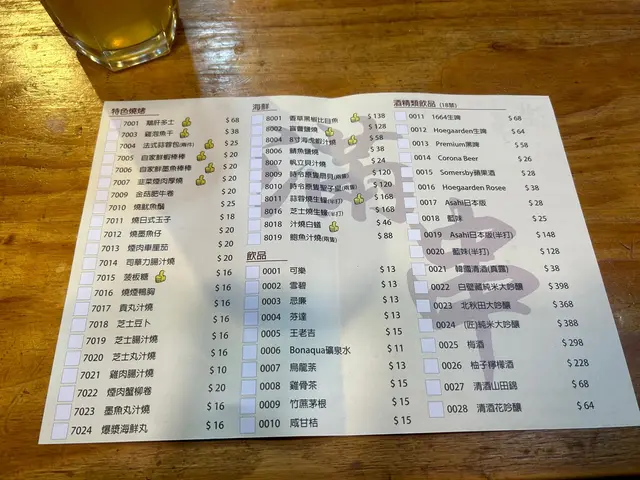 特色燒烤
7001 鵝肝多士 $ 68
7003 雞泡魚干 $ 38
7004 法式蒜蓉包(兩件) $ 20
7005 自家鮮蝦棒棒 $ 25
7006 自家鮮墨魚棒棒 $ 20
7007 韭菜煙肉厚燒 $ 20
7009 金菇肥牛卷 $ 20
7010 燒魷魚鬚 $ 25
7011 燒日式玉子 $ 18
7012 燒墨魚仔 $ 20
7013 煙肉車厘茄 $ 20
7014 司華力腸汁燒 $ 20
7015 菠板糖 $ 16
7016 燒煙鴨胸 $ 16
7017 貢丸汁燒 $ 16
7018 芝士豆卜 $ 16
7019 芝士腸汁燒 $ 16
7020 芝士丸汁燒 $ 16
7021 雞肉腸汁燒 $ 10
7022 煙肉蟹柳卷 $ 20
7023 墨魚丸汁燒 $ 16
7024 爆漿海鮮丸 $ 16
海鮮
8001 香草黑椒比目魚 $ 138
8002 盲曹鹽燒 $ 128
8004 8寸海虎蝦汁燒 $ 58
8006 鯖魚鹽燒 $ 38
8007 帆立貝汁燒 $ 24
8009 時令原隻扇貝(兩隻) $ 120
8010 時令原隻聖子皇(兩隻) $ 120
8011 蒜蓉燒生蠔(半打) $ 168
8016 芝士燒生蠔(半打) $ 168
8018 汁燒白鱔 $ 46
8019 鮑魚汁燒(兩隻) $ 88
飲品
0001 可樂 $ 13
0002 雪碧 $ 13
0003 忌廉 $ 13
0004 芬達 $ 13
0005 王老吉 $ 15
0006 Bonaqua礦泉水 $ 11
0007 烏龍茶 $ 13
0008 雞骨茶 $ 15
0009 竹蔗茅根 $ 15
0010 咸甘桔 $ 15
酒精類飲品 (18禁)
0011 1664生啤 $ 68
0012 Hoegaarden生啤 $ 64
0013 Premium黑啤 $ 58
0014 Corona Beer $ 26
0015 Somersby蘋果酒 $ 28
0016 Hoegaarden Rosee $ 38
0017 Asahi日本版 $ 28
0018 藍妹 $ 25
0019 Asahi日本版(半打) $ 148
0020 藍妹(半打) $ 128
0021 韓國清酒(真露) $ 38
0022 白壁藏純米大吟釀 $ 398
0023 北秋田大吟釀 $ 368
0024 (匠)純米大吟釀 $ 388
0025 梅酒 $ 298
0026 柚子檸檬酒 $ 228
0027 清酒山田錦 $ 68
0028 清酒花吟釀 $ 64